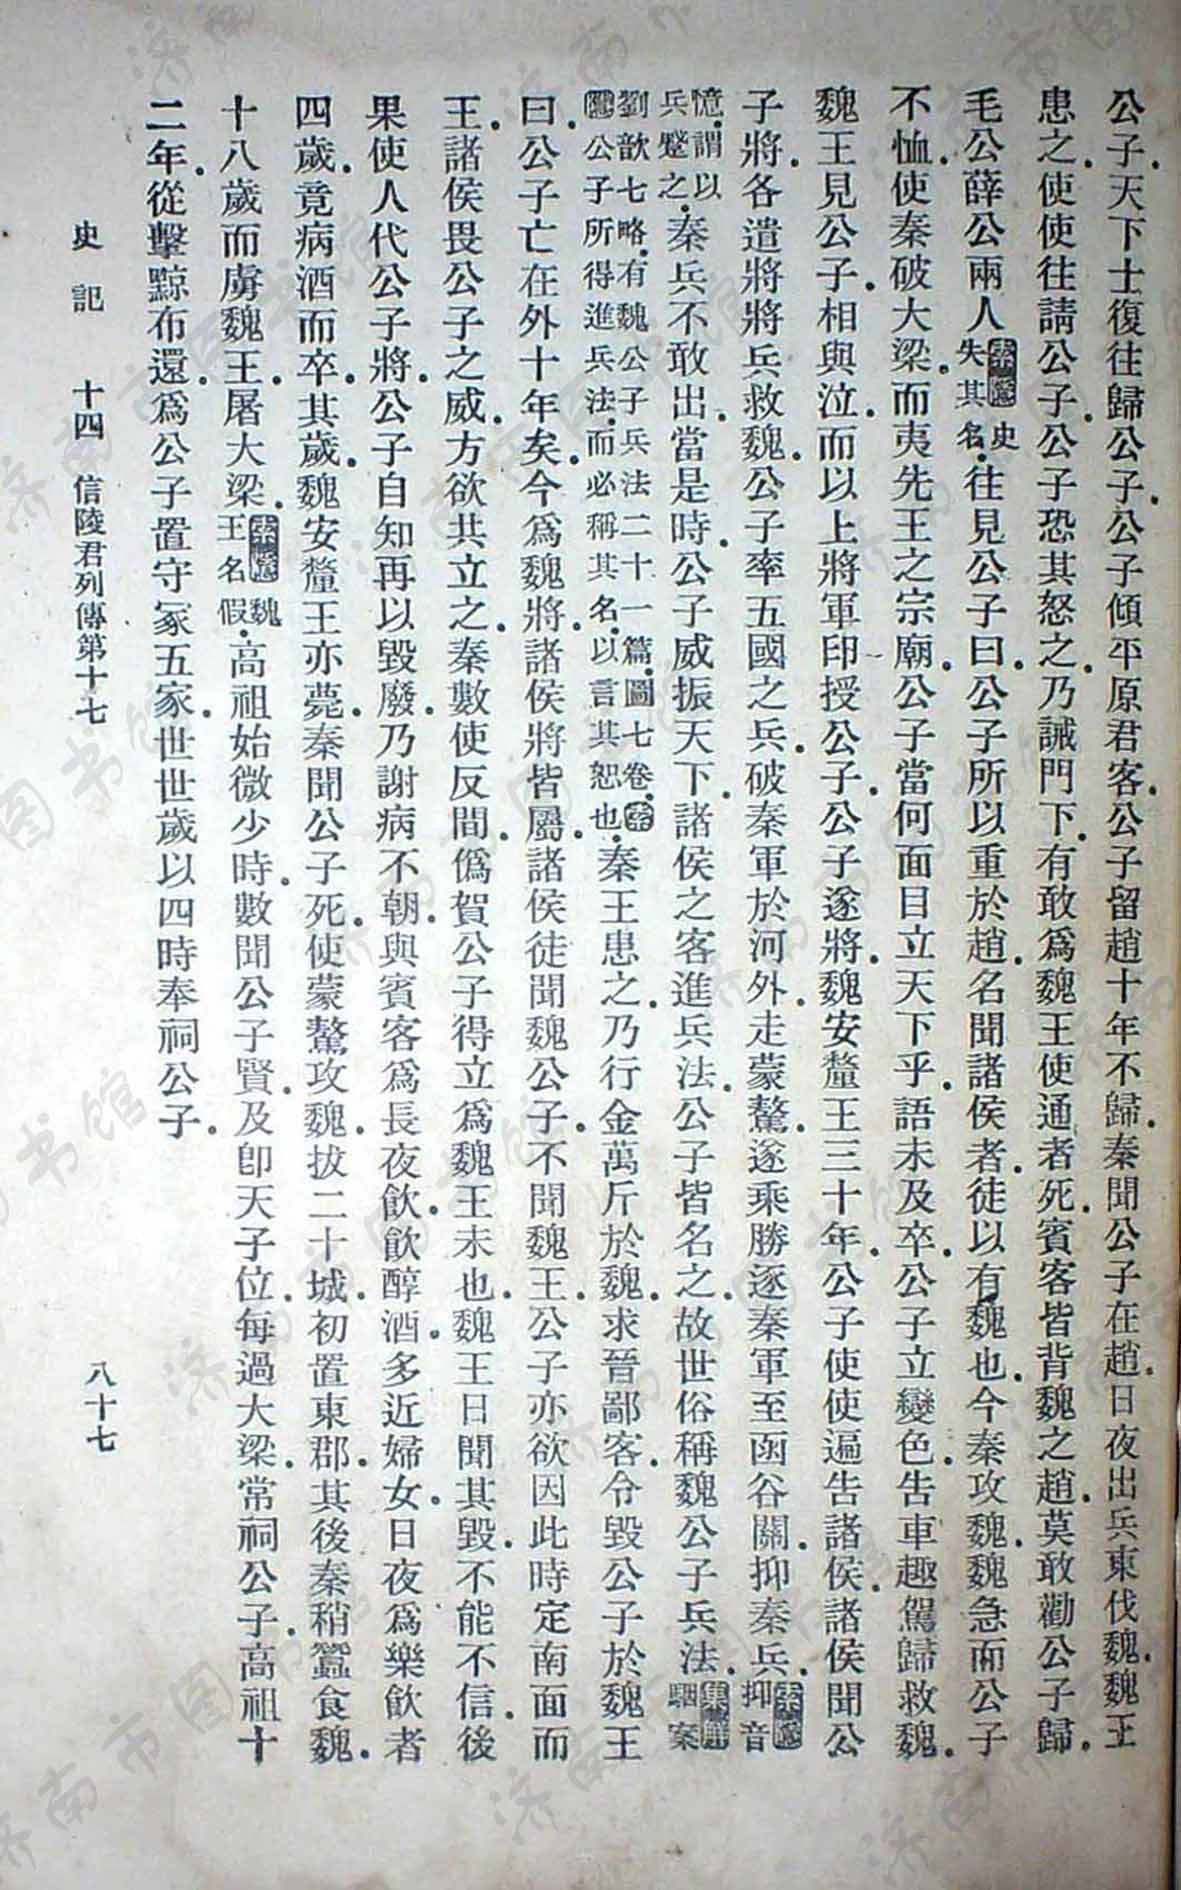 公子.天下士復往歸公子.公子傾平原君客.公子留趙十年不歸.秦聞公子在趙.日夜出兵東伐魏.魏王
患之.使使往請公子.公子恐其怒之.乃誡門下.有敢爲魏王使通者死.賓客皆背魏之趙.莫敢勸公子歸.
毛公薛公兩人索隱史失其名.往見公子曰.公子所以重於趙.名聞諸侯者.徒以有魏也.今秦攻魏.魏急而公子
不恤.使秦破大梁.而夷先王之宗廟.公子當何面目立天下乎.語未及卒.公子立變色.告車趣駕歸救魏.
魏王見公子.相與泣.而以上將軍印授公子.公子遂將.魏安釐王三十年.公子使使遍告諸侯.諸侯聞公
子將.各遣將將兵救魏.公子率五國之兵.破秦軍於河外.走蒙驁.遂乘勝逐秦軍至函谷關.抑秦兵.索隱抑音
憶.謂以兵蹙之.秦兵不敢出.當是時.公子威振天下.諸侯之客進兵法.公子皆名之.故世俗稱魏公子兵法.集解駰案
劉歆七略.有魏公子兵法二十一篇.圖七卷.索隱公子所得進兵法.而必稱其名.以言其恕也.秦王患之.乃行金萬斤於魏.求晉鄙客.令毀公子於魏王
曰.公子亡在外十年矣.今爲魏將.諸侯將皆屬.諸侯徒聞魏公子.不聞魏王.公子亦欲因此時定南面而
王.諸侯畏公子之威.方欲共立之.秦數使反間.僞賀公子得立爲魏王未也.魏王日聞其毀.不能不信.後
果使人代公子將.公子自知再以毀廢.乃謝病不朝.與賓客爲長夜飲.飲醇酒.多近婦女.日夜爲樂飲者
四歲.竟病酒而卒.其歲.魏安釐王亦薨.秦聞公子死.使蒙驁攻魏.拔二十城.初置東郡.其後秦稍蠶食魏.
十八歲而虜魏王.屠大梁.索隱魏王名假.高祖始微少時.數聞公子賢.及卽天子位.每過大梁.常祠公子.高祖十
二年.從擊黥布還.爲公子置守冢五家.世世歲以四時奉祠公子.
史記　十四　信陵君列傳第十七　八十七
济南市图书馆